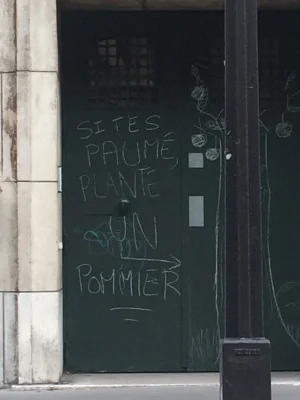 SITES
PAUMÉ,
PLANTE
UN
POMMIER